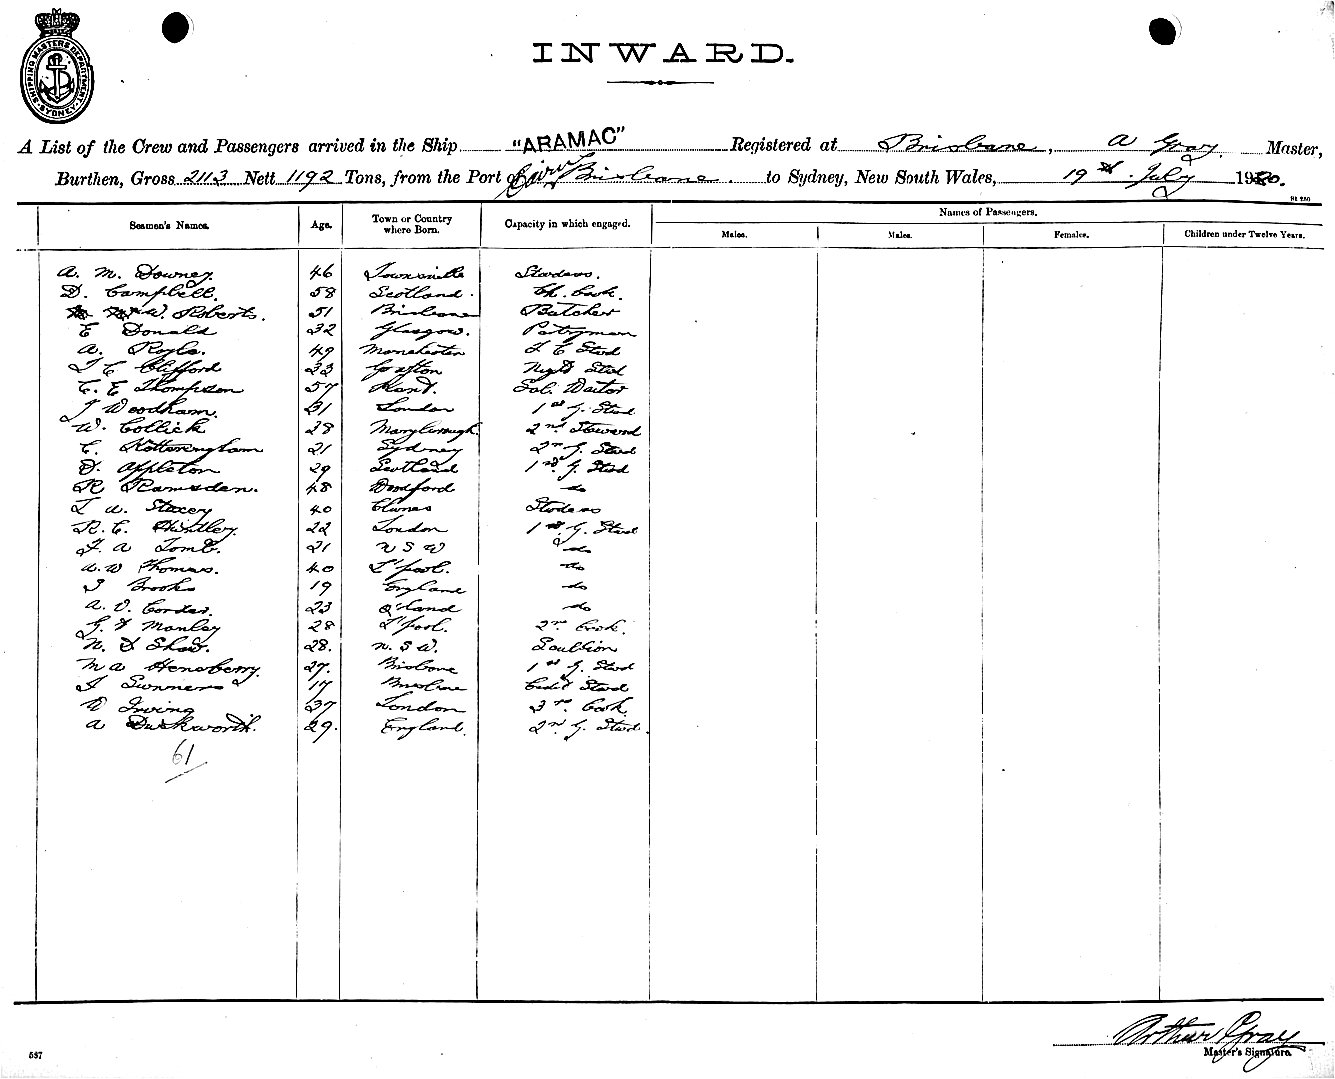 SHIPPING MASTERS DEPARTMENT SYDNEY
INWARD.
A List of the Crew and Passengers arrived in the Ship "ARAMAC" Registered at Brisbane, A Gray. Master,
Burthen, Gross 2113 Nett 1192 Tons, from the Port of Brisbane. to Sydney, New South Wales, 19 July 19
Seamen's Names. Age. Town or Country where Born. Capacity in which engaged. Names of Passengers.
Males. Males. Females. Children under Twelve Years.
A. M. Downey 46 Townsville
D. Campbell. 58 Scotland. Ch. Cook.
W. Roberts. 51 Brisbane Butcher
E Donald 32 Glasgow. Pantryman
A. Royle. 49 Manchester Stwd
Clifford 33 Grafton Night Stwd
C. E Thompson 57 Kent. Sal. Waiter
J Woodham. 31 London 1st G. Stwd
W. Collick 28 Maryborough. 2nd Steward
C. Kotteringham 21 Sydney 2nd G. Stwd
D. Appleton 29 Scotland G. Stwd
R Ramsden. 48 Woodford do
A. Stacey 40 Clunes Stwdess
R. C. Hindley. 22 London G. Stwd
F. A Tomb. 21 N S W do
A. W Thomas. 40 L'pool. do
Brooks 19 England do
A. V. Cordes. 23 Q'land do
G. Manley 28 L'pool. 2nd Cook.
N. Shaw. 28. N. S W. Scullion
M A Hensberry. 27. Brisbane 1st G. Stwd
Sumners 17 Brisbane Cadet Stwd
Irving 37 London 3rd Cook.
A Duckworth. 29. England. 2nd G. Stwd.
61
Arthur Gray
Master's Signature.
587